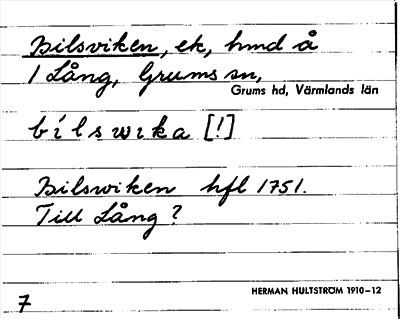 Bilsviken, ek, hmd å
1 Lång, Grums sn,
Grums hd, Värmlands län
bi´lswıka [!]
Bilswiken hfl 1751.
Till Lång?
HERMAN HULTSTRÖM 1910-12
7